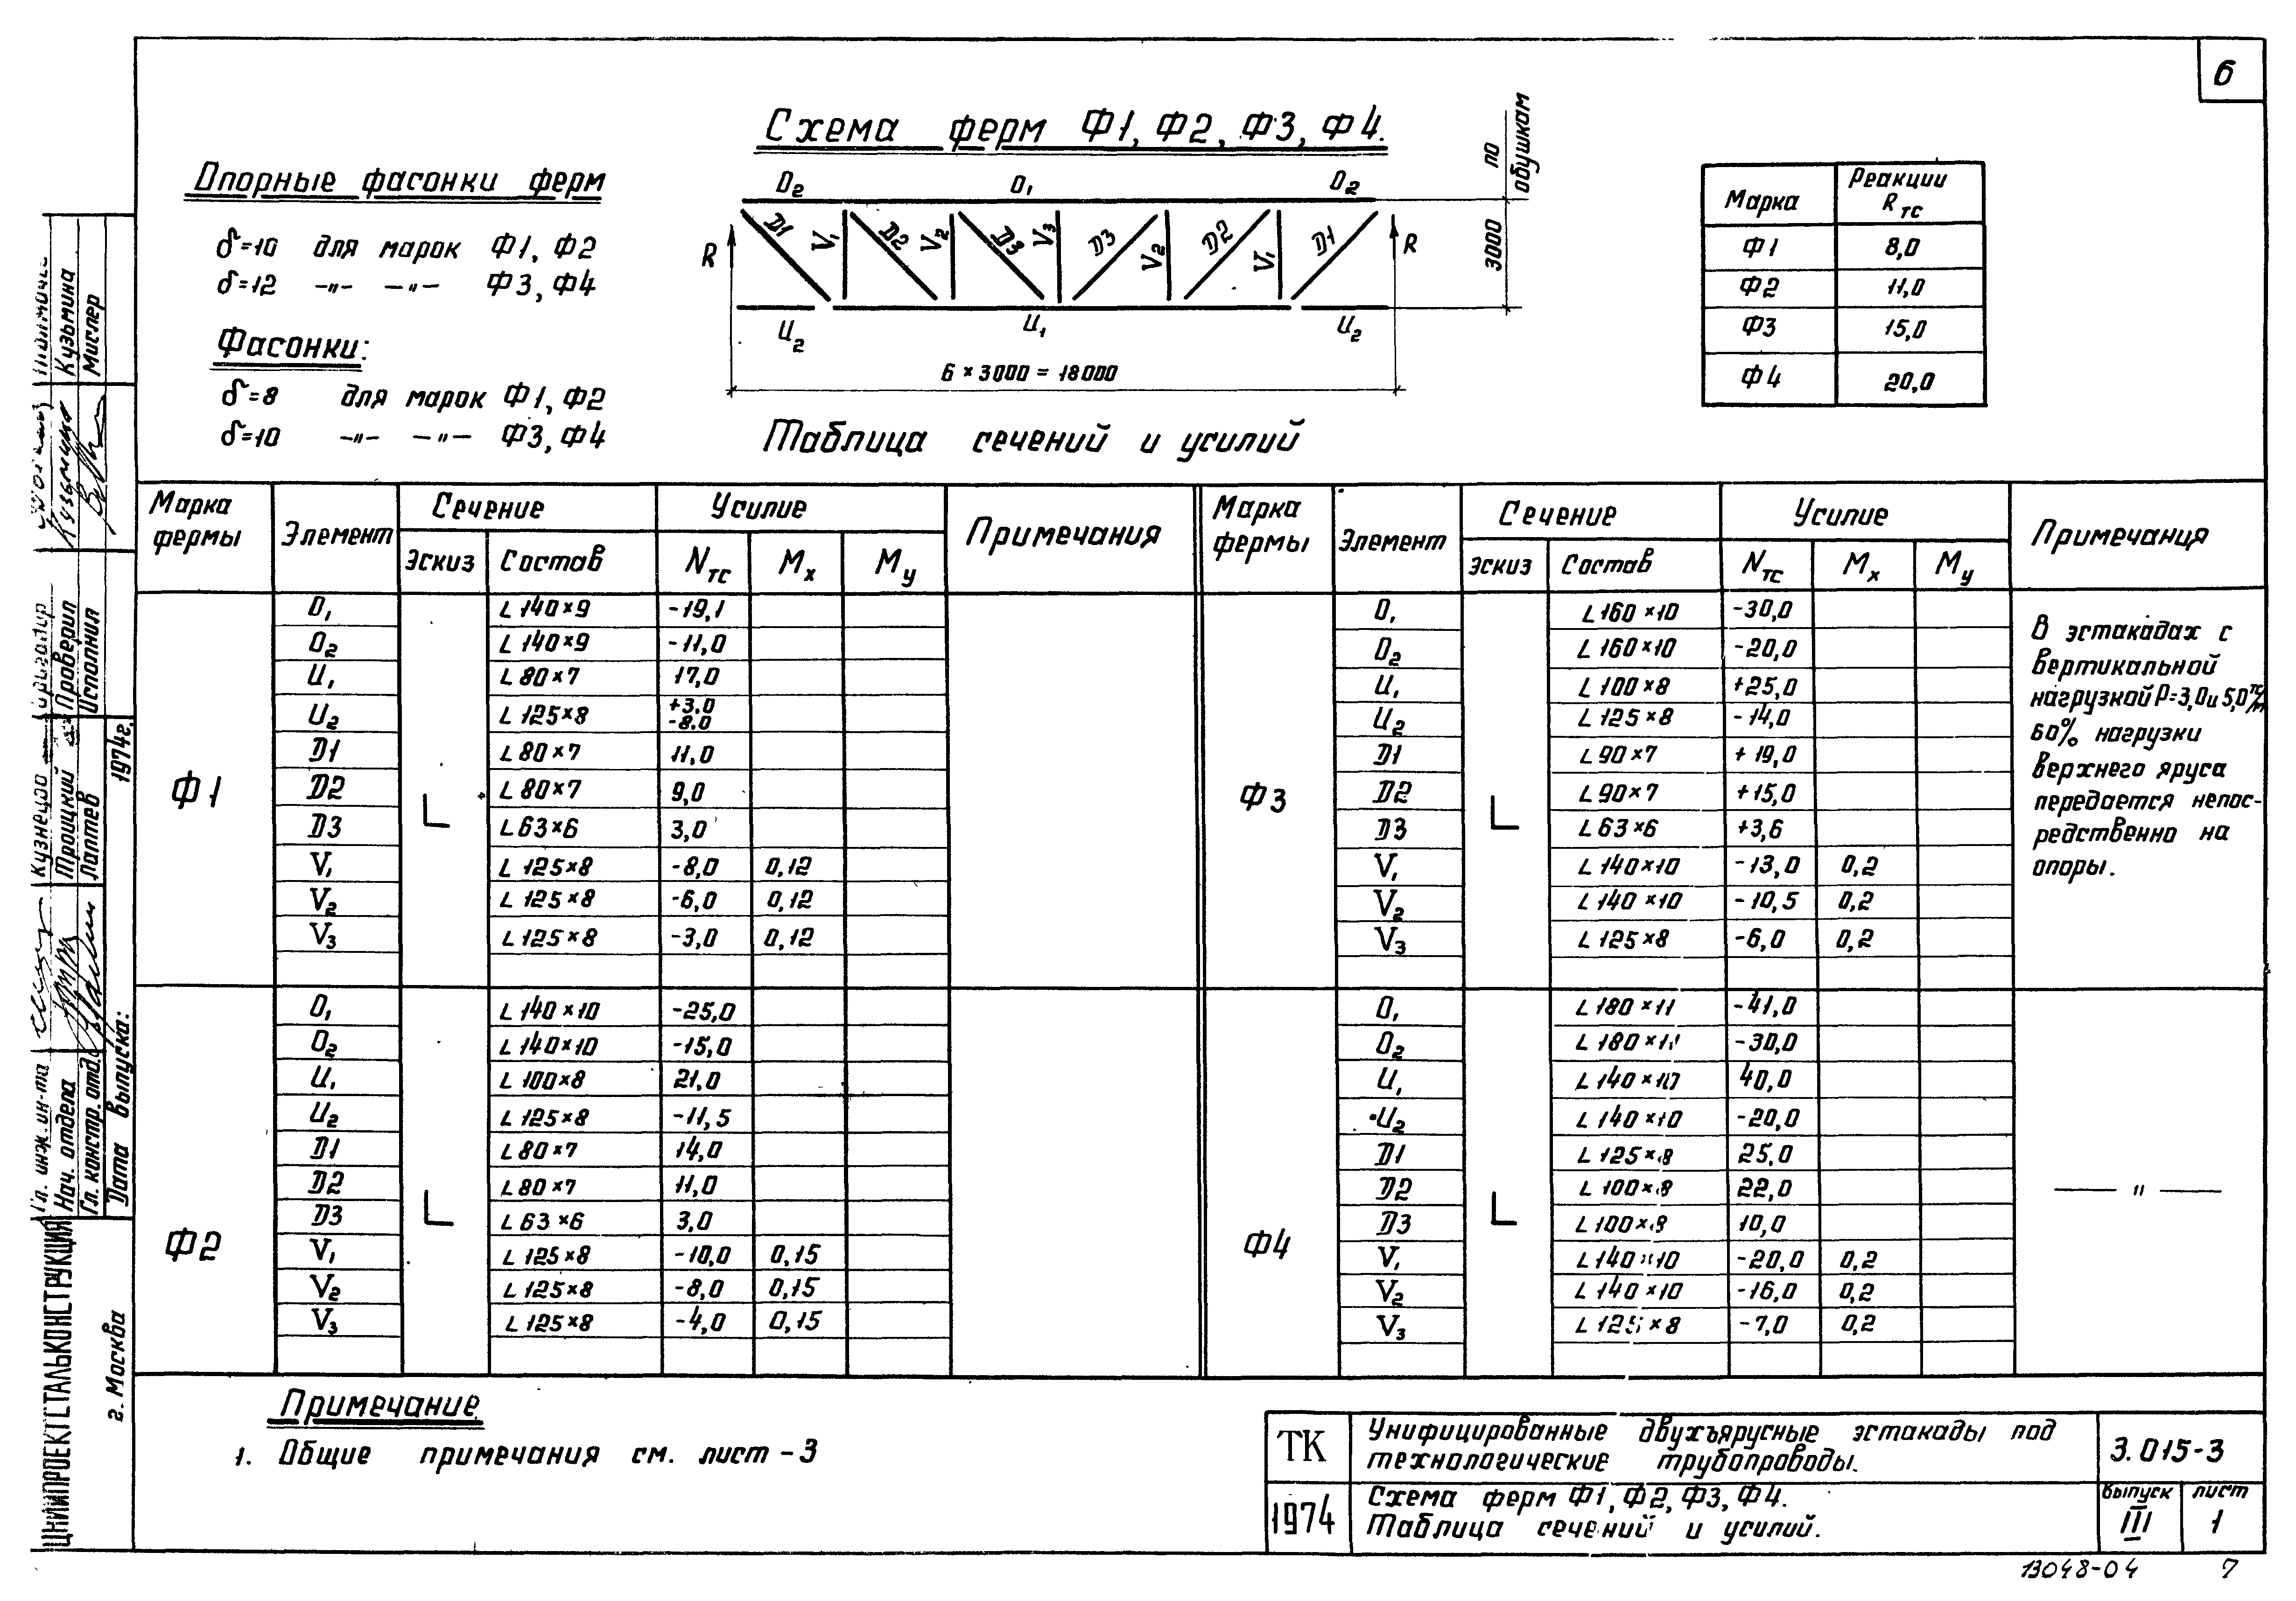 6
Схема ферм Ф1, Ф2, Ф3, Ф4.
Опорные фасонки ферм
δ=10 для марок Ф1, Ф2
δ=12 -"- -"- Ф3, Ф4
Фасонки:
δ=8 для марок Ф1, Ф2
δ=10 -"- -"- Ф3, Ф4
O₂ O₁ O₂
D1 V₁ D2 V₂ D3 V₃ D3 V₂ D2 V₁ D1
R R
U₂ U₁ U₂
6 × 3000 = 18000
3000
по обушкам
Марка Реакции Rтс
Ф1 8,0
Ф2 11,0
Ф3 15,0
Ф4 20,0
Таблица сечений и усилий
Марка фермы Элемент Сечение Усилие Примечания
эскиз Состав Nтс Mx My
Ф1
O₁ L 140×9 -19,1
O₂ L 140×9 -11,0
U₁ L 80×7 17,0
U₂ L 125×8 +3.0 -8.0
D1 L 80×7 11,0
D2 L 80×7 9,0
D3 L 63×6 3,0
V₁ L 125×8 -8,0 0,12
V₂ L 125×8 -6,0 0,12
V₃ L 125×8 -3,0 0,12
Ф2
O₁ L 140×10 -25,0
O₂ L 140×10 -15,0
U₁ L 100×8 21,0
U₂ L 125×8 -11,5
D1 L 80×7 14,0
D2 L 80×7 11,0
D3 L 63×6 3,0
V₁ L 125×8 -10,0 0,15
V₂ L 125×8 -8,0 0,15
V₃ L 125×8 -4,0 0,15
Марка фермы Элемент Сечение Усилие Примечания
эскиз Состав Nтс Mx My
Ф3
O₁ L 160×10 -30,0
O₂ L 160×10 -20,0
U₁ L 100×8 +25,0
U₂ L 125×8 -14,0
D1 L 90×7 +19,0
D2 L 90×7 +15,0
D3 L 63×6 +3,6
V₁ L 140×10 -13,0 0,2
V₂ L 140×10 -10,5 0,2
V₃ L 125×8 -6,0 0,2
В эстакадах с
вертикальной
нагрузкой P=3,0 и 5,0 тс/м
60% нагрузки
верхнего яруса
передается непос-
редственно на
опоры.
Ф4
O₁ L 180×11 -41,0
O₂ L 180×11 -30,0
U₁ L 140×10 40,0
U₂ L 140×10 -20,0
D1 L 125×8 25,0
D2 L 100×8 22,0
D3 L 100×8 10,0
V₁ L 140×10 -20,0 0,2
V₂ L 140×10 -16,0 0,2
V₃ L 125×8 -7,0 0,2
— " —
Примечание
1. Общие примечания см. лист-3
ТК
Унифицированные двухъярусные эстакады под
технологические трубопроводы.
3.015-3
1974
Схема ферм Ф1, Ф2, Ф3, Ф4.
Таблица сечений и усилий.
выпуск III
лист 1
13048-04 7
ЦНИИПРОЕКТСТАЛЬКОНСТРУКЦИЯ
г. Москва
Гл. инж. ин-та Кузнецов
Нач. отдела Троицкий
Гл. констр. отд. Лаптев
Дата выпуска: 1974г.
Проверил Кузьмина
Исполнил Мислер